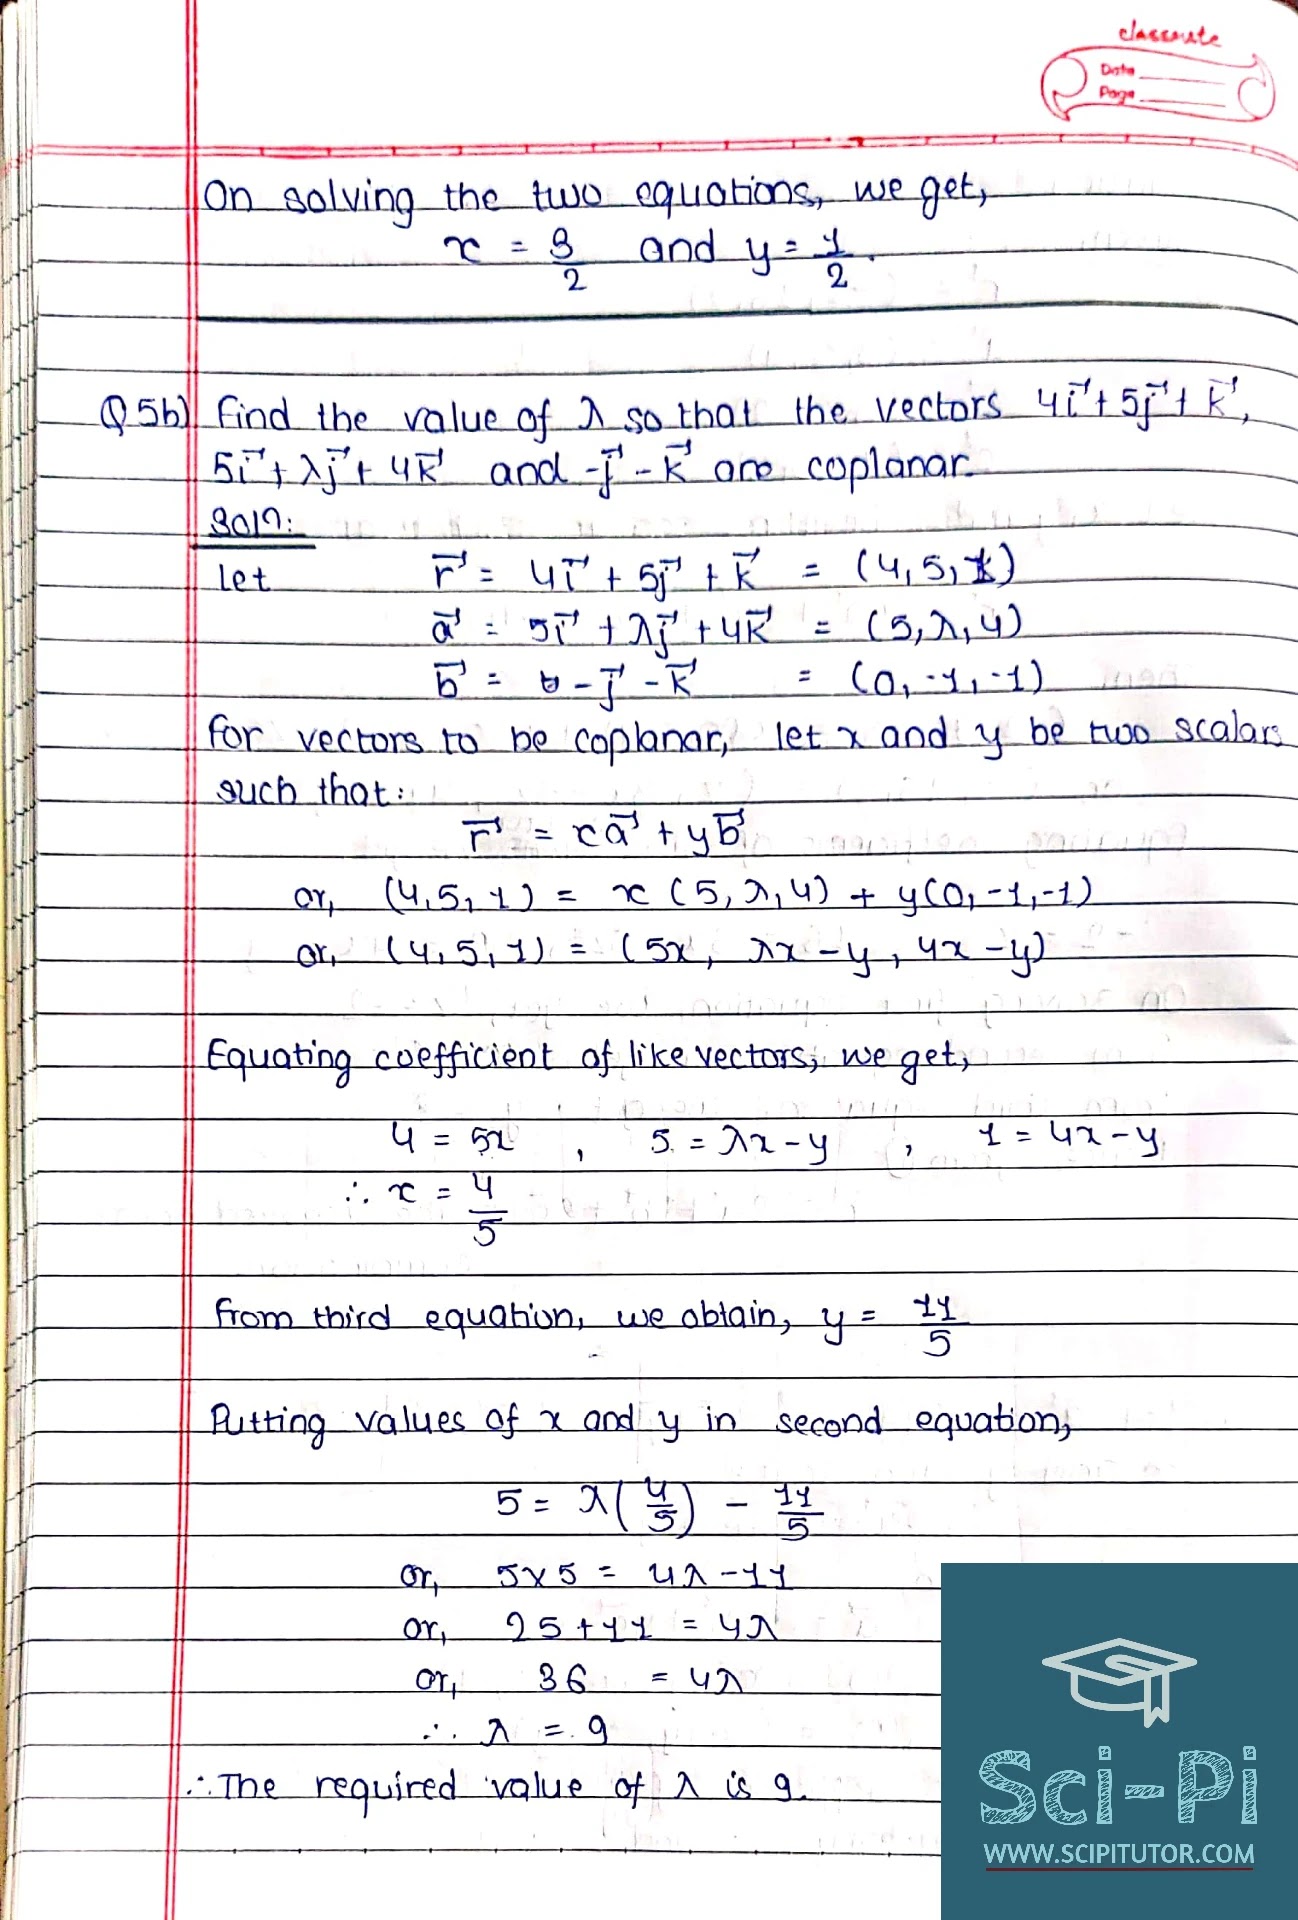 classmate
Date
Page
On solving the two equations, we get,
x = 3/2 and y = 1/2.
Q5b) Find the value of λ so that the vectors 4i⃗ + 5j⃗ + k⃗,
5i⃗ + λj⃗ + 4k⃗ and -j⃗ - k⃗ are coplanar.
Soln:
Let r⃗ = 4i⃗ + 5j⃗ + k⃗ = (4, 5, 1)
a⃗ = 5i⃗ + λj⃗ + 4k⃗ = (5, λ, 4)
b⃗ = -j⃗ - k⃗ = (0, -1, -1)
For vectors to be coplanar, let x and y be two scalars
such that:
r⃗ = xa⃗ + yb⃗
or, (4, 5, 1) = x (5, λ, 4) + y(0, -1, -1)
or, (4, 5, 1) = (5x, λx - y, 4x - y)
Equating coefficient of like vectors, we get,
4 = 5x , 5 = λx - y , 1 = 4x - y
∴ x = 4/5
From third equation, we obtain, y = 11/5
Putting values of x and y in second equation,
5 = λ(4/5) - 11/5
or, 5×5 = 4λ - 11
or, 25 + 11 = 4λ
or, 36 = 4λ
∴ λ = 9
∴ The required value of λ is 9.
Sci-Pi
WWW.SCIPITUTOR.COM